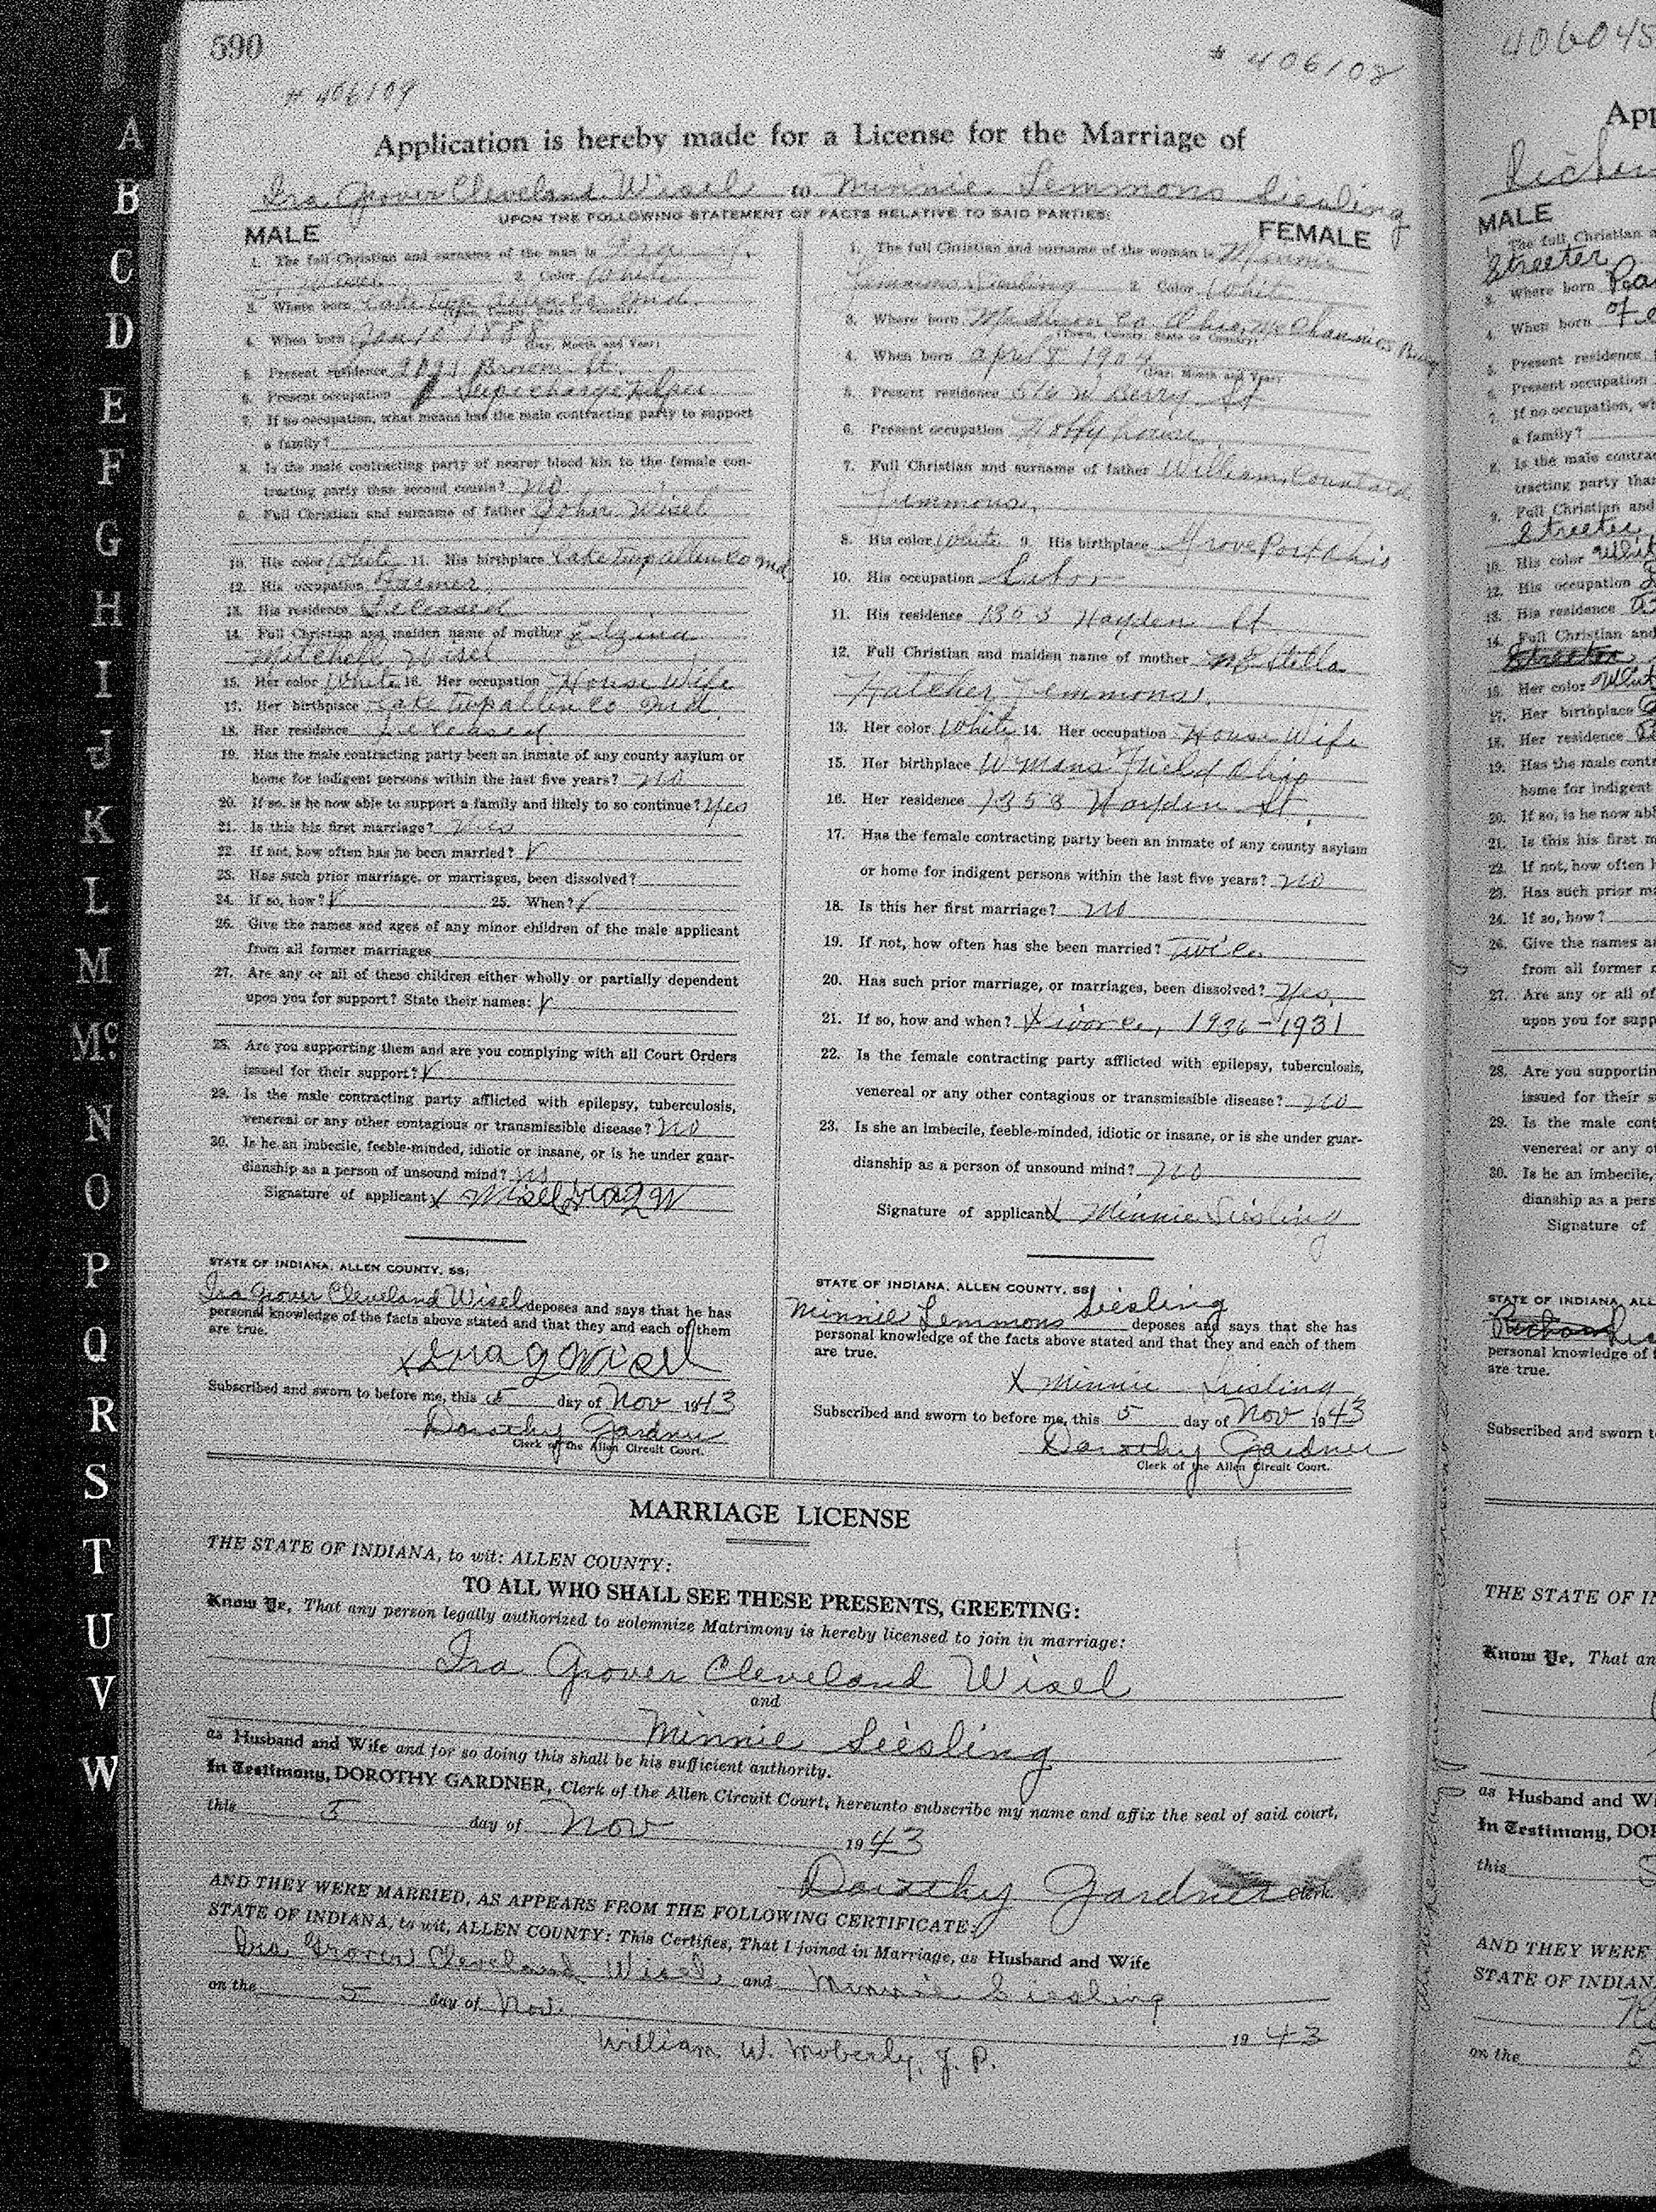 590
# 406108
# 406109
Application is hereby made for a License for the Marriage of
Ira Grover Cleveland Wisel to Minnie Lemmons Siesling
UPON THE FOLLOWING STATEMENT OF FACTS RELATIVE TO SAID PARTIES:
MALE
1. The full Christian and surname of the man is Ira G.
2. Color White
3. Where born Lake Twp Allen Co Ind.
(Town, County, State or Country)
4. When born Jan 1888
(Day, Month and Year)
5. Present residence Broom St.
6. Present occupation Supercharge Helper
7. If no occupation, what means has the male contracting party to support
a family?
8. Is the male contracting party of nearer blood kin to the female con-
tracting party than second cousin? no
9. Full Christian and surname of father John Wisel
10. His color White 11. His birthplace Lake twp allen Co Ind
12. His occupation Farmer
13. His residence Deceased
14. Full Christian and maiden name of mother Elzina
Mitchell Wisel
15. Her color White 16. Her occupation House Wife
17. Her birthplace Lake twp allen Co Ind.
18. Her residence Deceased
19. Has the male contracting party been an inmate of any county asylum or
home for indigent persons within the last five years? no
20. If so, is he now able to support a family and likely to so continue? Yes
21. Is this his first marriage? Yes
22. If not, how often has he been married? ✓
23. Has such prior marriage, or marriages, been dissolved?
24. If so, how? ✓ 25. When? ✓
26. Give the names and ages of any minor children of the male applicant
from all former marriages
27. Are any or all of these children either wholly or partially dependent
upon you for support? State their names: ✓
28. Are you supporting them and are you complying with all Court Orders
issued for their support? ✓
29. Is the male contracting party afflicted with epilepsy, tuberculosis,
venereal or any other contagious or transmissible disease? no
30. Is he an imbecile, feeble-minded, idiotic or insane, or is he under guar-
dianship as a person of unsound mind? no
Signature of applicant x Wisel Ira G W
STATE OF INDIANA, ALLEN COUNTY, SS;
Ira Grover Cleveland Wisel deposes and says that he has
personal knowledge of the facts above stated and that they and each of them
are true.
x Ira G Wisel
Subscribed and sworn to before me, this 5 day of Nov 1943
Dorothy Gardner
Clerk of the Allen Circuit Court.
FEMALE
1. The full Christian and surname of the woman is Minnie
Lemmons Siesling 2. Color White
3. Where born Madison Co Ohio, Mechanics Burg
(Town, County, State or Country)
4. When born april 8 1904
(Day, Month and Year)
5. Present residence 516 W Berry St
6. Present occupation
7. Full Christian and surname of father William
Lemmons,
8. His color White 9. His birthplace Grove Port Ohio
10. His occupation Labor
11. His residence 1353 Hayden St
12. Full Christian and maiden name of mother Stella
Hatcher Lemmons.
13. Her color White 14. Her occupation House Wife
15. Her birthplace Ohio
16. Her residence 1358 Hayden St.
17. Has the female contracting party been an inmate of any county asylum
or home for indigent persons within the last five years? no
18. Is this her first marriage? no
19. If not, how often has she been married? Twice
20. Has such prior marriage, or marriages, been dissolved? Yes
21. If so, how and when? Divorce, 1926 - 1931
22. Is the female contracting party afflicted with epilepsy, tuberculosis,
venereal or any other contagious or transmissible disease? no
23. Is she an imbecile, feeble-minded, idiotic or insane, or is she under guar-
dianship as a person of unsound mind? no
Signature of applicant x Minnie Siesling
STATE OF INDIANA, ALLEN COUNTY, SS
Minnie Lemmons Siesling deposes and says that she has
personal knowledge of the facts above stated and that they and each of them
are true.
x Minnie Siesling
Subscribed and sworn to before me, this 5 day of Nov 1943
Dorothy Gardner
Clerk of the Allen Circuit Court.
MARRIAGE LICENSE
THE STATE OF INDIANA, to wit: ALLEN COUNTY:
TO ALL WHO SHALL SEE THESE PRESENTS, GREETING:
Know Ye, That any person legally authorized to solemnize Matrimony is hereby licensed to join in marriage:
Ira Grover Cleveland Wisel
and
Minnie Siesling
as Husband and Wife and for so doing this shall be his sufficient authority.
In Testimony, DOROTHY GARDNER, Clerk of the Allen Circuit Court, hereunto subscribe my name and affix the seal of said court,
this 5 day of Nov 1943
Dorothy Gardner Clerk.
AND THEY WERE MARRIED, AS APPEARS FROM THE FOLLOWING CERTIFICATE:
STATE OF INDIANA, to wit, ALLEN COUNTY: This Certifies, That I joined in Marriage, as Husband and Wife
Ira Grover Cleveland Wisel and Minnie Siesling
on the 5 day of Nov. 1943
William W. Moberly, J. P.
A
B
C
D
E
F
G
H
I
J
K
L
M
Mc.
N
O
P
Q
R
S
T
U
V
W
406045
App
MALE
1. The full Christian a
Streeter
3. Where born
4. When born
Present residence
Present occupation
7. If no occupation, wh
a family?
8. Is the male contrac
tracting party than
9. Full Christian and
Streeter
10. His color Whit
12. His occupation
13. His residence
14. Full Christian and
16. Her color Whit
17. Her birthplace
18. Her residence
19. Has the male contr
home for indigent
20. If so, is he now abl
21. Is this his first m
22. If not, how often h
23. Has such prior ma
24. If so, how?
26. Give the names a
from all former
27. Are any or all of
upon you for supp
28. Are you supportin
issued for their s
29. Is the male cont
venereal or any o
30. Is he an imbecile,
dianship as a pers
Signature of
STATE OF INDIANA, ALL
personal knowledge of t
are true.
Subscribed and sworn t
THE STATE OF IN
Know Ye, That an
as Husband and Wi
In Testimony, DOR
this
AND THEY WERE
STATE OF INDIAN
on the 5